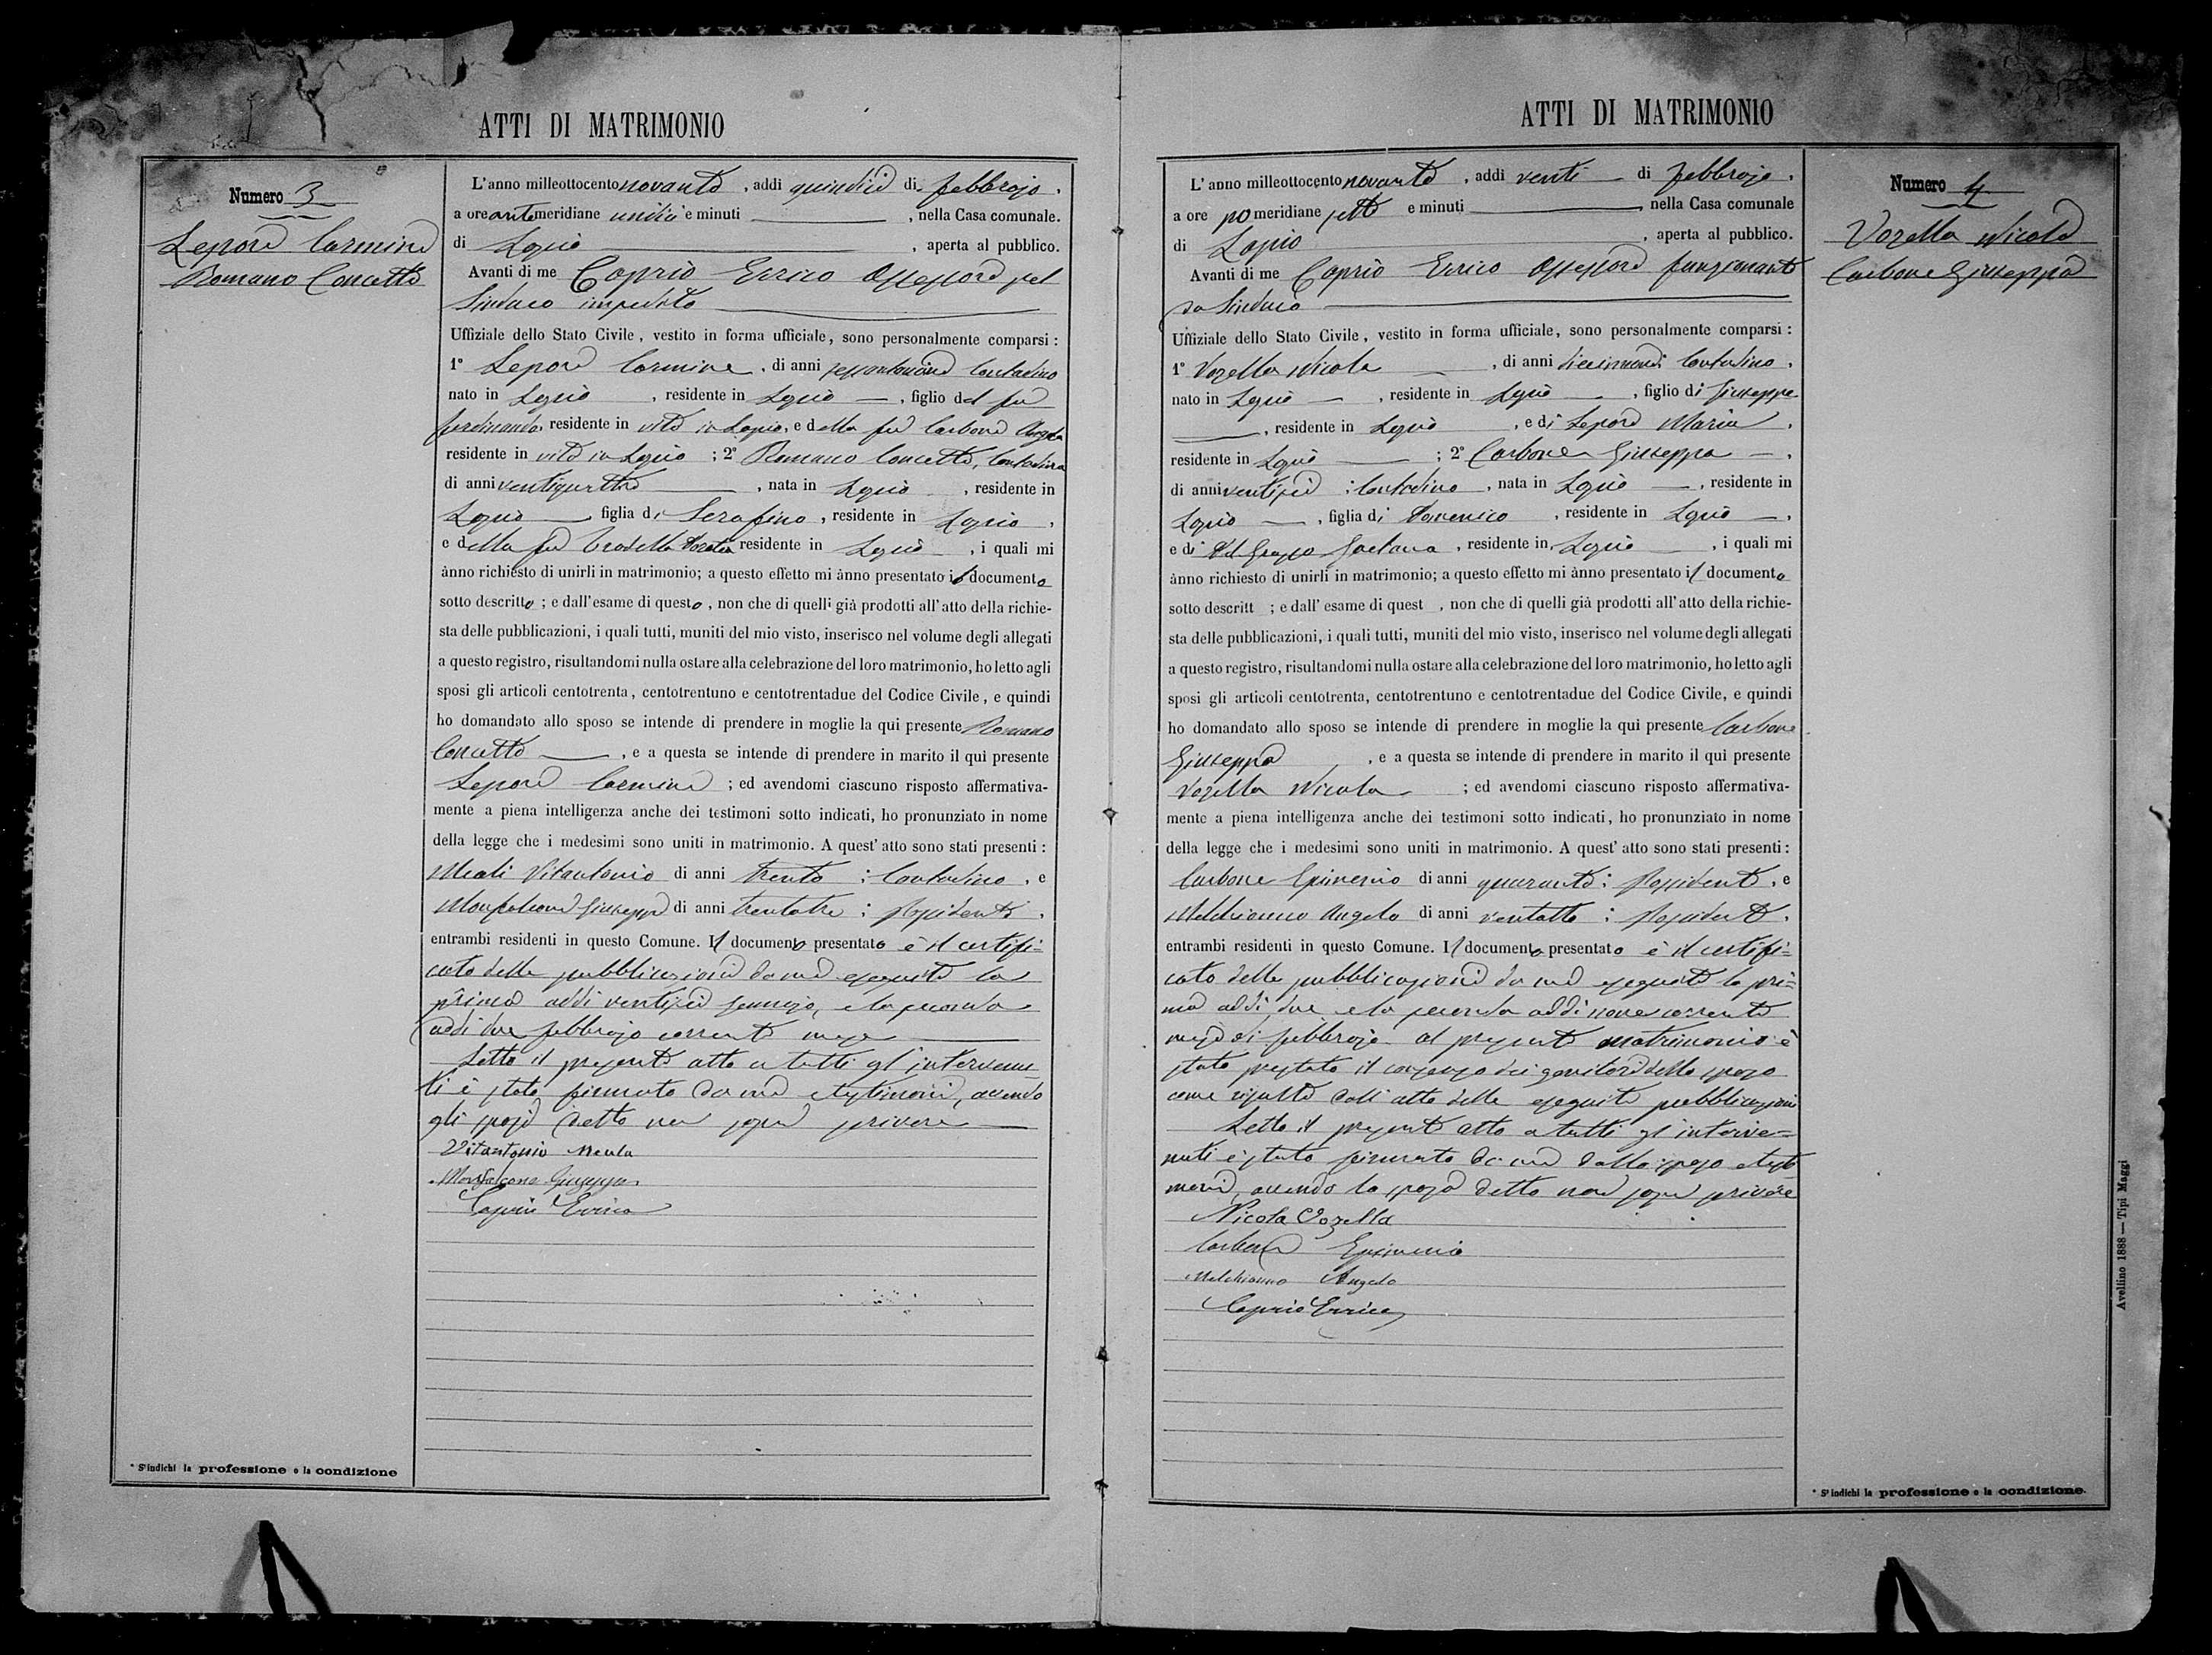 ATTI DI MATRIMONIO
Numero 3
Lepore Carmine
Romano Concetta
L'anno milleottocentonovanta, addì quindici di febbrajo,
a ore antemeridiane undici e minuti , nella Casa comunale.
di Lapio , aperta al pubblico.
Avanti di me Caprio Errico Assessore pel
Sindaco impedito
Uffiziale dello Stato Civile, vestito in forma ufficiale, sono personalmente comparsi :
1° Lepore Carmine, di anni contadino
nato in Lapio , residente in Lapio , figlio del fu
Ferdinando, residente in vita in Lapio, e della fu Carbone Angela
residente in vita in Lapio ; 2° Romano Concetta, contadina
di anni ventiquattro , nata in Lapio , residente in
Lapio figlia di Serafino, residente in Lapio ,
e della fu residente in Lapio , i quali mi
ànno richiesto di unirli in matrimonio; a questo effetto mi ànno presentato il documento
sotto descritto ; e dall'esame di questo, non che di quelli già prodotti all'atto della richie-
sta delle pubblicazioni, i quali tutti, muniti del mio visto, inserisco nel volume degli allegati
a questo registro, risultandomi nulla ostare alla celebrazione del loro matrimonio, ho letto agli
sposi gli articoli centotrenta, centotrentuno e centotrentadue del Codice Civile, e quindi
ho domandato allo sposo se intende di prendere in moglie la qui presente Romano
Concetta , e a questa se intende di prendere in marito il qui presente
Lepore Carmine ; ed avendomi ciascuno risposto affermativa-
mente a piena intelligenza anche dei testimoni sotto indicati, ho pronunziato in nome
della legge che i medesimi sono uniti in matrimonio. A quest' atto sono stati presenti :
Vitantonio di anni trenta : contadino, e
Monfalcone Giuseppe di anni trentatre : possidente,
entrambi residenti in questo Comune. Il documento presentato è il certifi=
cato delle pubblicazioni da me eseguite la
prima addì ventisei gennajo, e la seconda
addì due febbrajo corrente mese
Letto il presente atto a tutti gl'intervenu
ti è stato firmato da me e testimoni, avendo
gli sposi detto non saper scrivere
Vitantonio Meola
Monfalcone Giuseppe
Caprio Errico
* S'indichi la professione o la condizione
ATTI DI MATRIMONIO
Numero 4
Vozella Nicola
Carbone Giuseppa
L'anno milleottocentonovanta, addì venti di febbrajo,
a ore pomeridiane sette e minuti , nella Casa comunale
di Lapio , aperta al pubblico.
Avanti di me Caprio Errico Assessore funzionante
da Sindaco
Uffiziale dello Stato Civile, vestito in forma ufficiale, sono personalmente comparsi :
1° Vozella Nicola , di anni diecinnove: contadino,
nato in Lapio , residente in Lapio , figlio di Giuseppe
, residente in Lapio , e di Lepore Maria ,
residente in Lapio ; 2° Carbone Giuseppa ,
di anni ventisei : contadina , nata in Lapio , residente in
Lapio , figlia di Domenico , residente in Lapio ,
e di Del Grosso Gaetana , residente in Lapio , i quali mi
ànno richiesto di unirli in matrimonio; a questo effetto mi ànno presentato il documento
sotto descritt ; e dall' esame di quest , non che di quelli già prodotti all' atto della richie-
sta delle pubblicazioni, i quali tutti, muniti del mio visto, inserisco nel volume degli allegati
a questo registro, risultandomi nulla ostare alla celebrazione del loro matrimonio, ho letto agli
sposi gli articoli centotrenta, centotrentuno e centotrentadue del Codice Civile, e quindi
ho domandato allo sposo se intende di prendere in moglie la qui presente Carbone
Giuseppa , e a questa se intende di prendere in marito il qui presente
Vozella Nicola ; ed avendomi ciascuno risposto affermativa-
mente a piena intelligenza anche dei testimoni sotto indicati, ho pronunziato in nome
della legge che i medesimi sono uniti in matrimonio. A quest' atto sono stati presenti :
Carbone Epimenio di anni quaranta: possidente, e
Melchionno Angelo di anni ventotto : possidente,
entrambi residenti in questo Comune. Il documento presentato è il certifi=
cato delle pubblicazioni da me eseguite la pri=
ma addì due e la seconda addì nove corrente
mese di febbrajo al presente matrimonio è
stato prestato il consenso dei genitori dello sposo
come risulta dall'atto delle eseguite pubblicazioni
Letto il presente atto a tutti gl'interve=
nuti è stato firmato da me dallo sposo e testi
moni, avendo la sposa detto non saper scrivere
Nicola Vozella
Carbone Epimenio
Melchionno Angelo
Caprio Errico
* S'indichi la professione o la condizione.
Avellino 1888 — Tipi Maggi